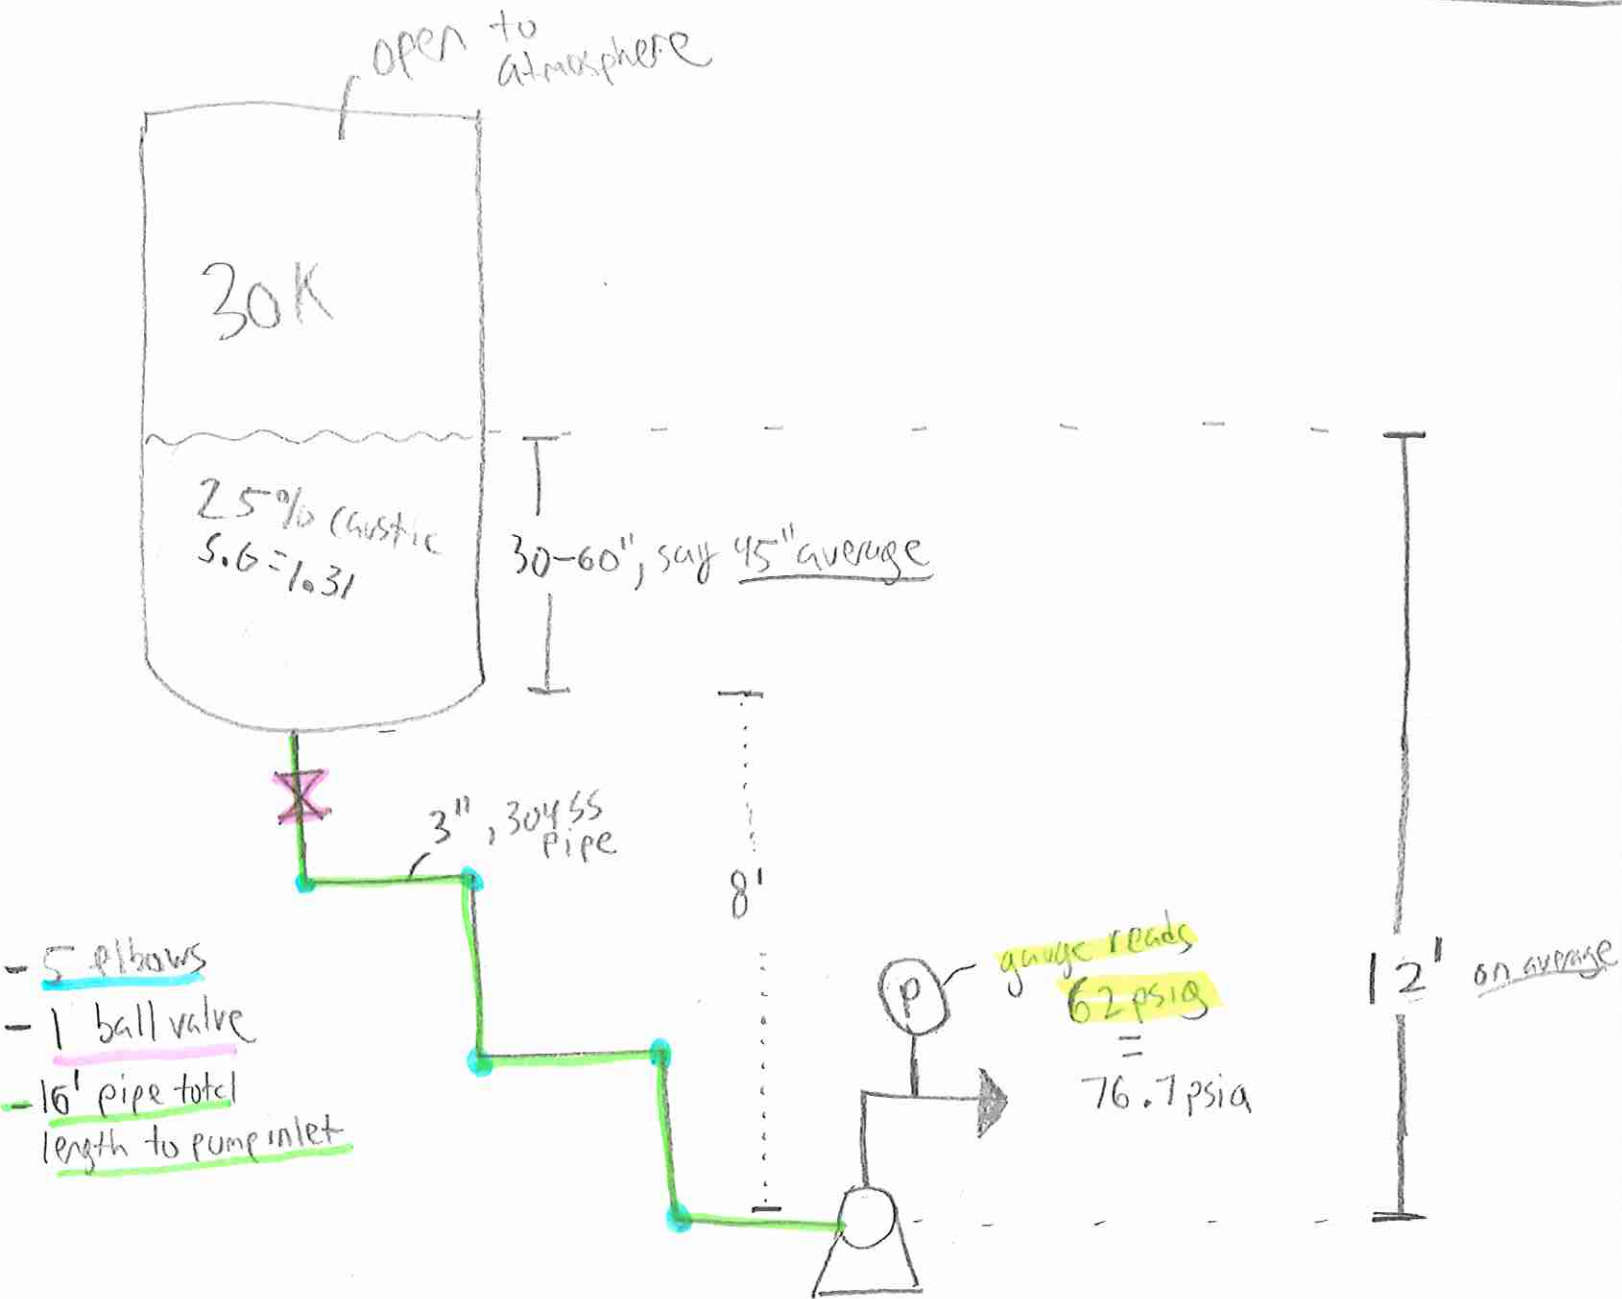 open to
atmosphere
30K
25% caustic
S.G=1.31
30-60", say 45" average
3", 304SS
pipe
8'
- 5 elbows
- 1 ball valve
- 16' pipe total
length to pump inlet
P
gauge reads
62 psig
=
76.7 psia
12' on average